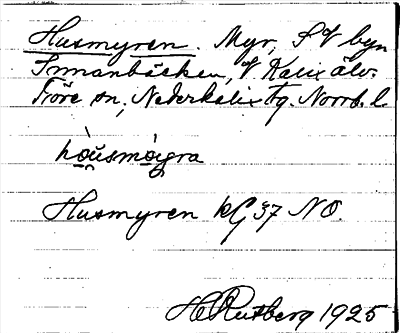 Husmyren. Myr, S of byn
Innanbäcken, V Kalix älv.
Töre sn, Nederkalix tg. Norrb. l.
hòusmỳgra
Husmyren kG 37 NO.
H Rutberg 1925